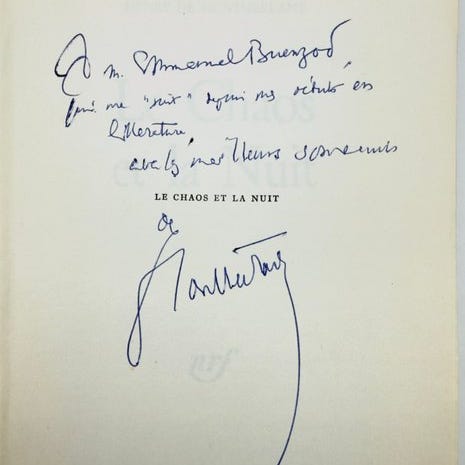 HENRY DE MONTHERLANT
A M. Emmanuel Buenzod,
qui me "suit" depuis mes débuts en
littérature,
avec les meilleurs souvenirs
Le Chaos
et la Nuit
LE CHAOS ET LA NUIT
de
Montherlant
nrf